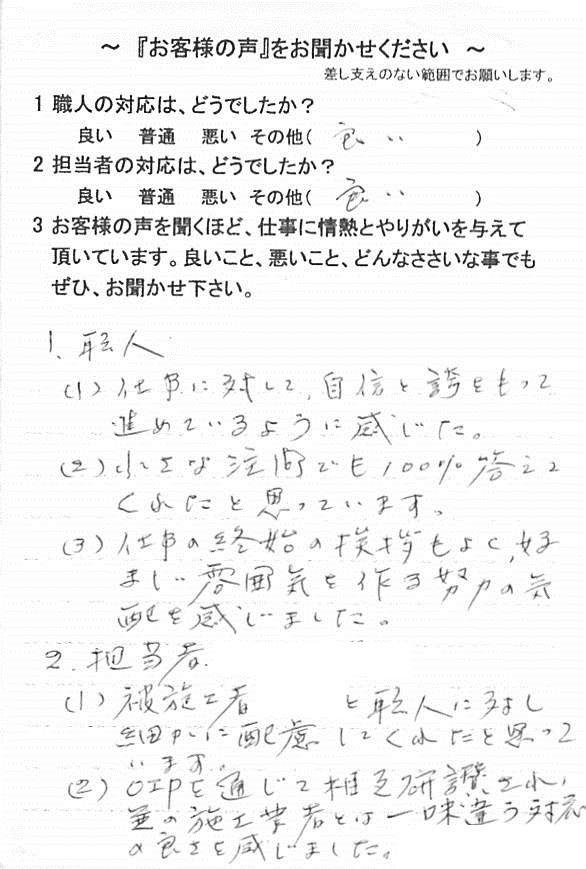 ～ 『お客様の声』をお聞かせください ～
差し支えのない範囲でお願いします。
1 職人の対応は、どうでしたか？
良い 普通 悪い その他( 良い )
2 担当者の対応は、どうでしたか？
良い 普通 悪い その他( 良い )
3 お客様の声を聞くほど、仕事に情熱とやりがいを与えて
頂いています。良いこと、悪いこと、どんなささいな事でも
ぜひ、お聞かせ下さい。
1、職人
(1) 仕事に対して、自信と誇をもって
進めているように感じた。
(2) 小さな注問でも100%答えて
くれたと思っています。
(3) 仕事の終始の挨拶もよく、好
ましい雰囲気を作る努力の気
配を感じました。
2、担当者
(1) 被施工者 と職人に対し
細かに配慮してくれたと思って
います。
(2) OIPを通じて相互研讃され、
並の施工業者とは一味違う対応
の良さを感じました。